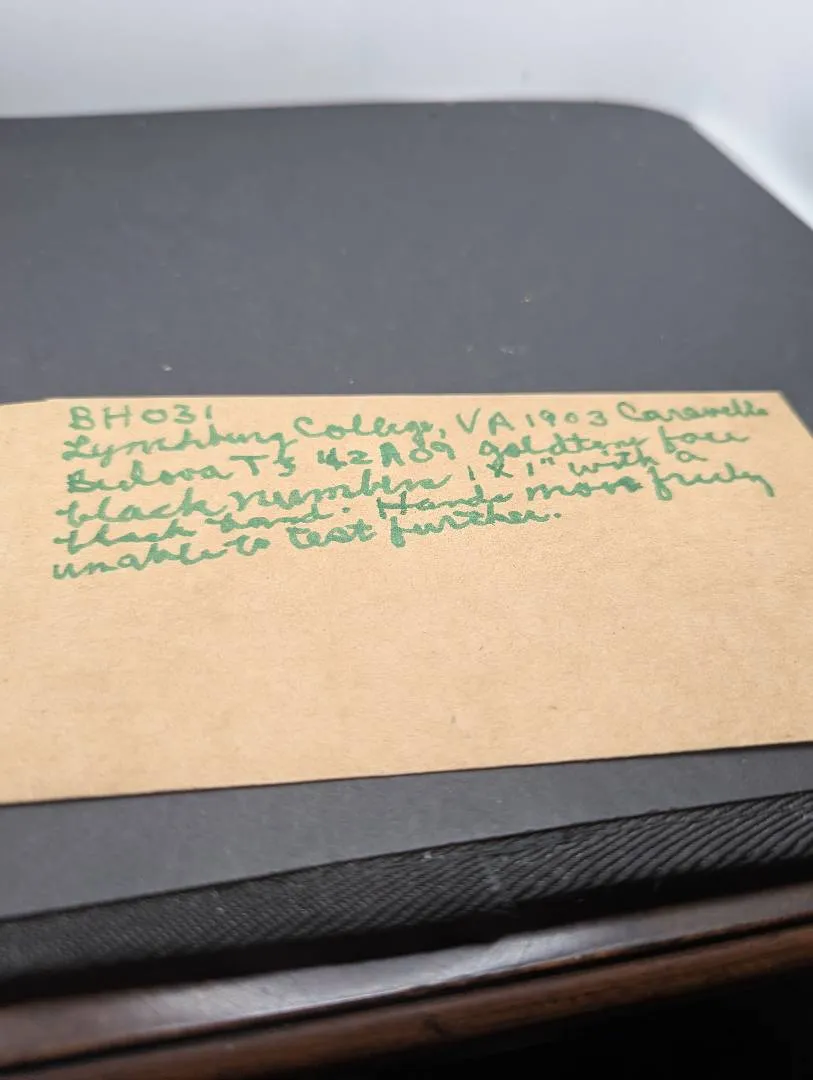 BH031
Lynchburg College, VA 1903 Caravelle
Bulova T5 42A09 goldtone face
black numbers 1 x 1" with a
black band. Hands move freely
unable to test further.